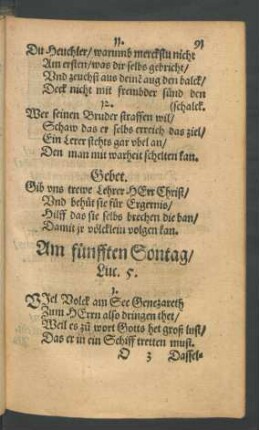 11. 91
Du Heuchler/ warumb merckstu nicht
Am ersten/ was dir selbs gebricht/
Vnd zeuchst aus deim aug den balck/
Deck nicht mit frembder sünd den
12. (schalck.
Wer seinen Bruder straffen wil/
Schaw das er selbs erreich das ziel/
Ein Lerer stehts gar vbel an/
Den man mit warheit schelten kan.
Gebet.
Gib vns trewe Lehrer HErr Christ/
Vnd behüt sie für Ergernis/
Hilff das sie selbs brechen die ban/
Damit jr völcklein volgen kan.
Am fünfften Sontag/
Luc. 5.
1.
VIel Volck am See Genezareth
Zum HErrn also dringen thet/
Weil es zů wort Gotts het groß lust/
Das er in ein Schiff tretten must.
O 3 Dassel-